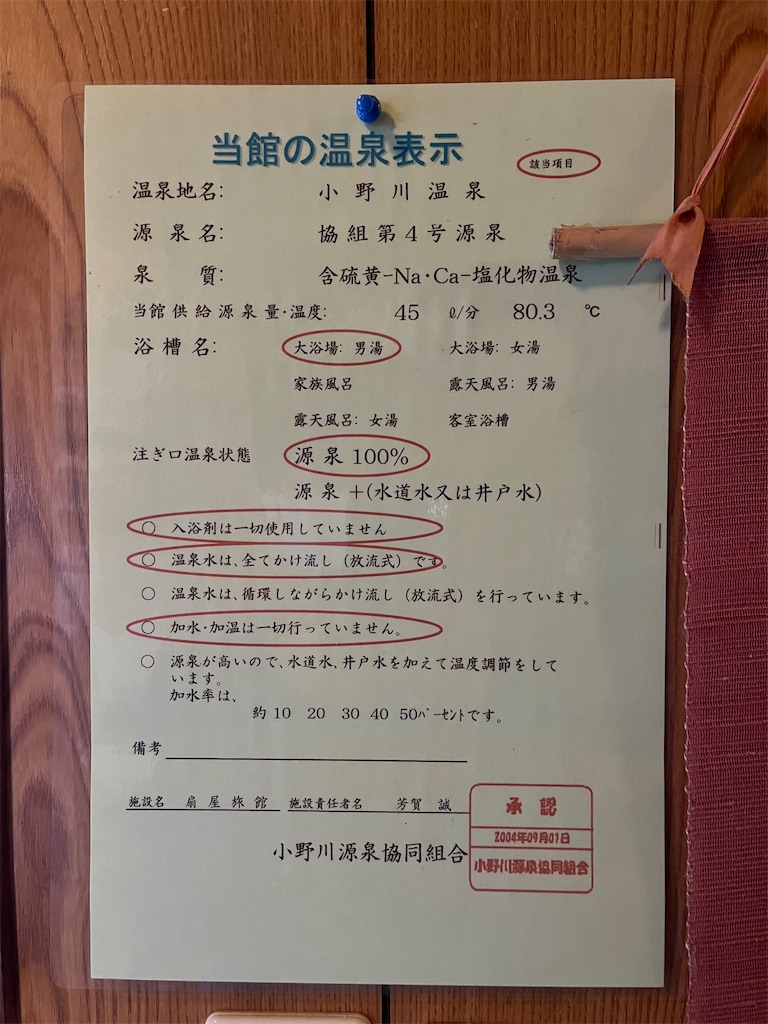 当館の温泉表示
該当項目
温泉地名: 小野川温泉
源泉名: 協組第4号源泉
泉質: 含硫黄-Na・Ca-塩化物温泉
当館供給源泉量・温度: 45 ℓ/分 80.3 ℃
浴槽名: 大浴場: 男湯 大浴場: 女湯
家族風呂 露天風呂: 男湯
露天風呂: 女湯 客室浴槽
注ぎ口温泉状態 源泉100%
源泉+(水道水又は井戸水)
○ 入浴剤は一切使用していません
○ 温泉水は、全てかけ流し(放流式)です。
○ 温泉水は、循環しながらかけ流し(放流式)を行っています。
○ 加水・加温は一切行っていません。
○ 源泉が高いので、水道水、井戸水を加えて温度調節をして
います。
加水率は、
約10 20 30 40 50パーセントです。
備考
施設名 扇屋旅館 施設責任者名 芳賀 誠
小野川源泉協同組合
承認
2004年09月01日
小野川源泉協同組合